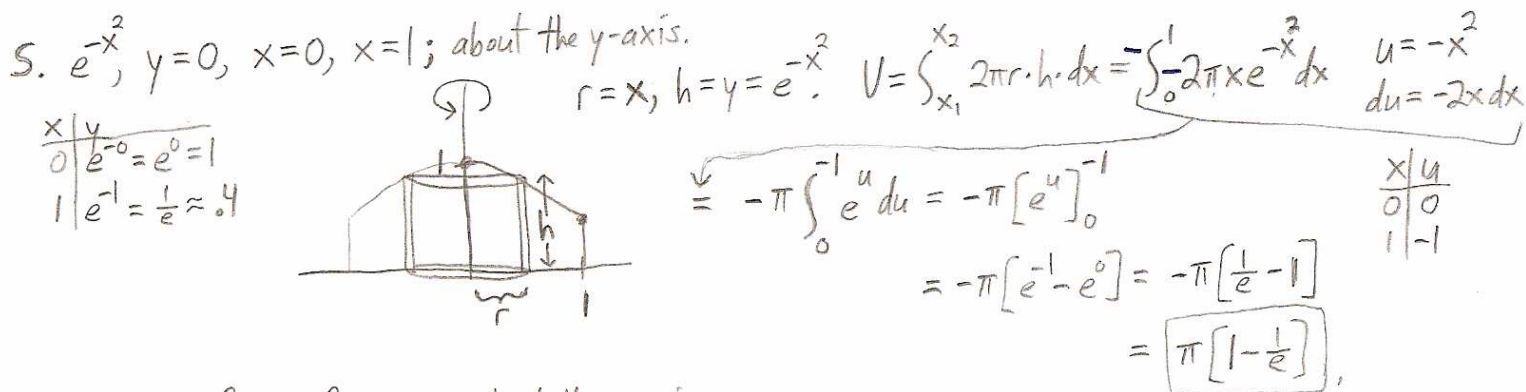 5. e^{-x^2}, y=0, x=0, x=1; about the y-axis.
r=x, h=y=e^{-x^2}. V=∫_{x_1}^{x_2} 2πr·h·dx = -∫_0^1 -2πxe^{-x^2}dx
u=-x^2
du=-2xdx
x | y
0 | e^{-0}=e^0=1
1 | e^{-1}=1/e≈.4
1
h
r
1
= -π∫_0^{-1} e^u du = -π[e^u]_0^{-1}
x | u
0 | 0
1 | -1
= -π[e^{-1}-e^0] = -π[1/e -1]
= π[1-1/e].